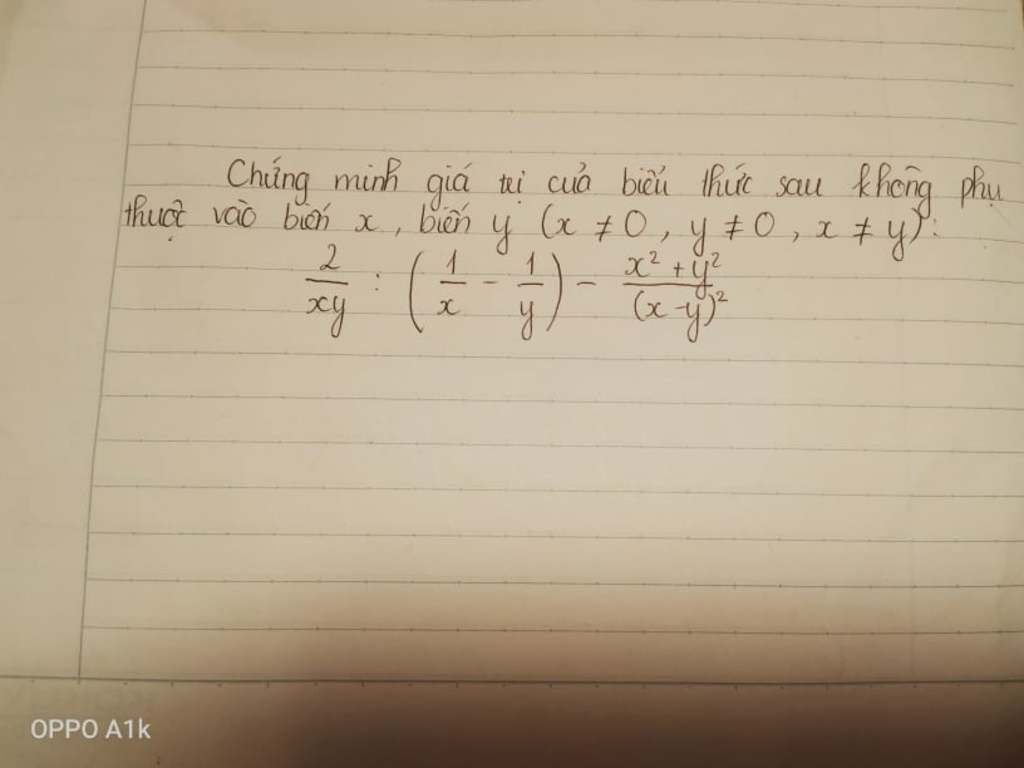 Chứng minh giá trị của biểu thức sau không phụ
thuộc vào biến x, biến y (x ≠ 0, y ≠ 0, x ≠ y):
2/xy : (1/x - 1/y) - (x² + y²)/(x - y)²
OPPO A1k